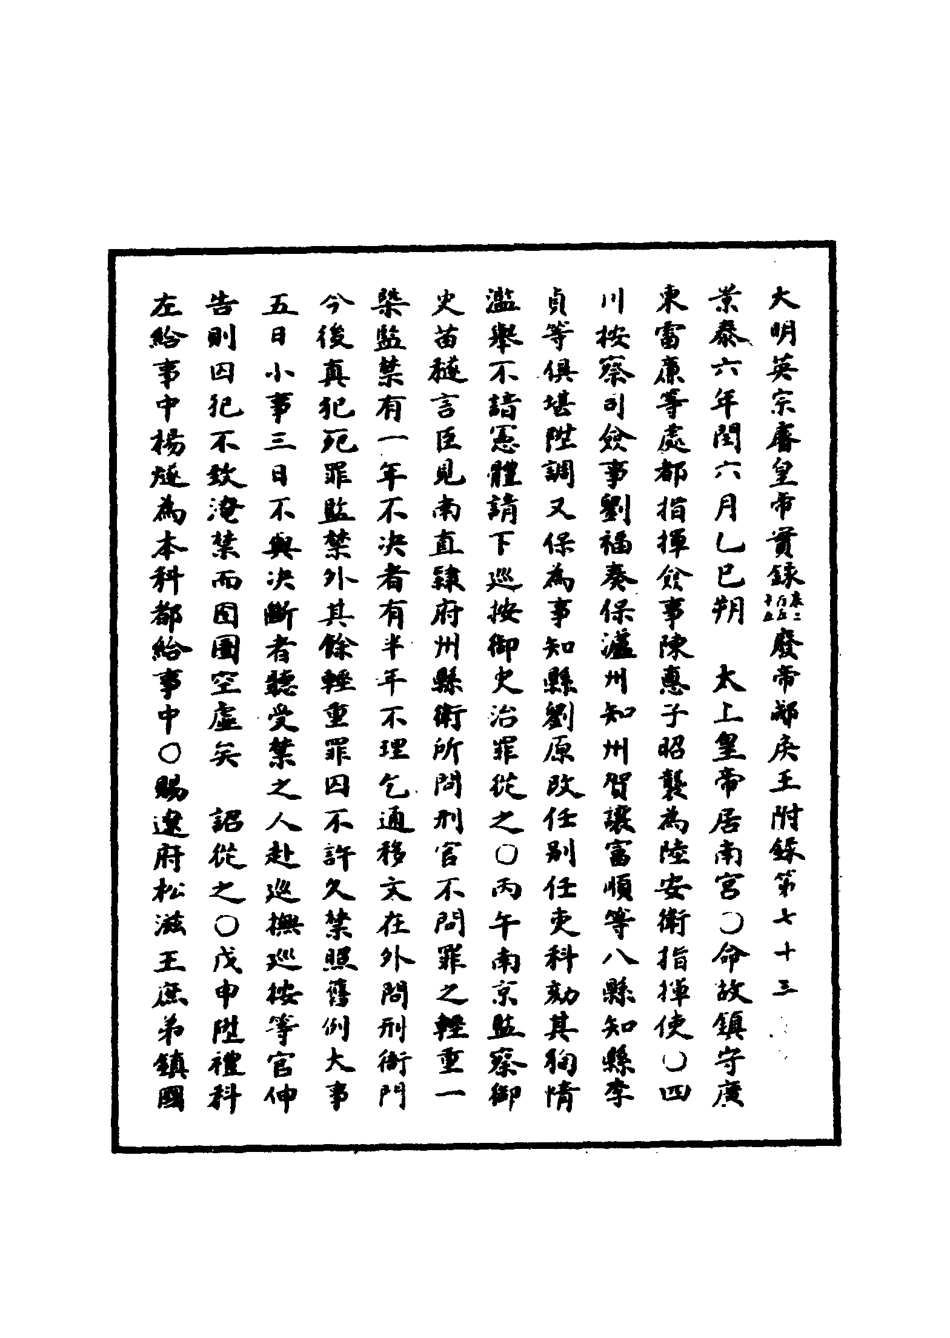 大明英宗睿皇帝實錄卷二百五十五廢帝郕戾王附錄第七十三
景泰六年閏六月乙巳朔　太上皇帝居南宮○命故鎮守廣
東富康等處都指揮僉事陳惠子昭襲為陸安衛指揮使○四
川按察司僉事劉福奏保瀘州知州賀讓富順等八縣知縣李
貞等俱堪陞調又保為事知縣劉原改任別任吏科劾其狥情
濫舉不諳憲體請下巡按御史治罪從之○丙午南京監察御
史苗穟言臣見南直隸府州縣衛所問刑官不問罪之輕重一
槩監禁有一年不決者有半年不理乞通移文在外問刑衙門
今後真犯死罪監禁外其餘輕重罪囚不許久禁照舊例大事
五日小事三日不與決斷者聽受禁之人赴巡撫巡按等官伸
告則囚犯不致淹禁而囹圄空虛矣　詔從之○戊申陞禮科
左給事中楊燧為本科都給事中○賜遼府松滋王庶弟鎮國